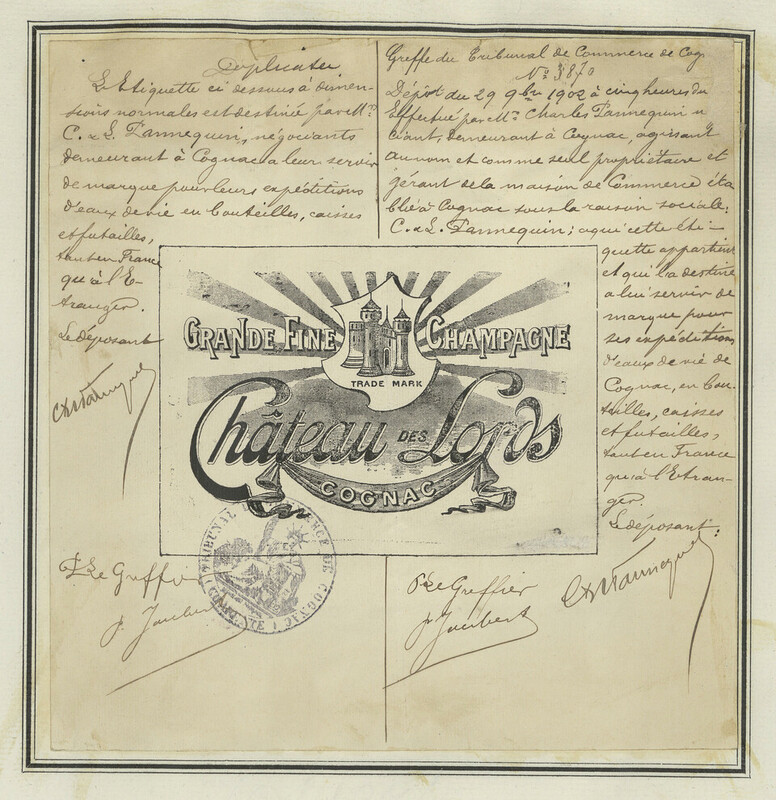 Duplicata
L'Etiquette ci dessous à dimen-
sions normales est destinée par M.rs
C. & L. Tannequin, négociants
demeurant à Cognac a leur servir
de marque pour leurs expéditions
d'eaux de vie en bouteilles, caisses
et futailles,
tant en France
qu'à l'E-
tranger.
Le déposant
Ch Tannequin
Pr Le Greffier
p. Joubert
Greffe du Tribunal de Commerce de Cog
No 3870
Dépôt du 29 9bre 1902 à cinq heures du
Effectué par Mr Charles Tannequin n
ciant, demeurant à Cognac, agissant
au nom et comme seul propriétaire et
gérant de la maison de Commerce éta
blie à Cognac sous la raison sociale:
C. & L. Tannequin; a qui cette éti-
quette appartient
et qui la destine
a lui servir de
marque pour
ses expéditions
d'eaux de vie de
Cognac, en bou-
teilles, caisses
et futailles,
tant en France
qu'à l'Etran-
ger.
Le déposant:
Ch Tannequin
Pr Le Greffier
p. Joubert
GRANDE FINE CHAMPAGNE
TRADE MARK
Château DES Lords
COGNAC
TRIBUNAL DE COMMERCE DE COGNAC